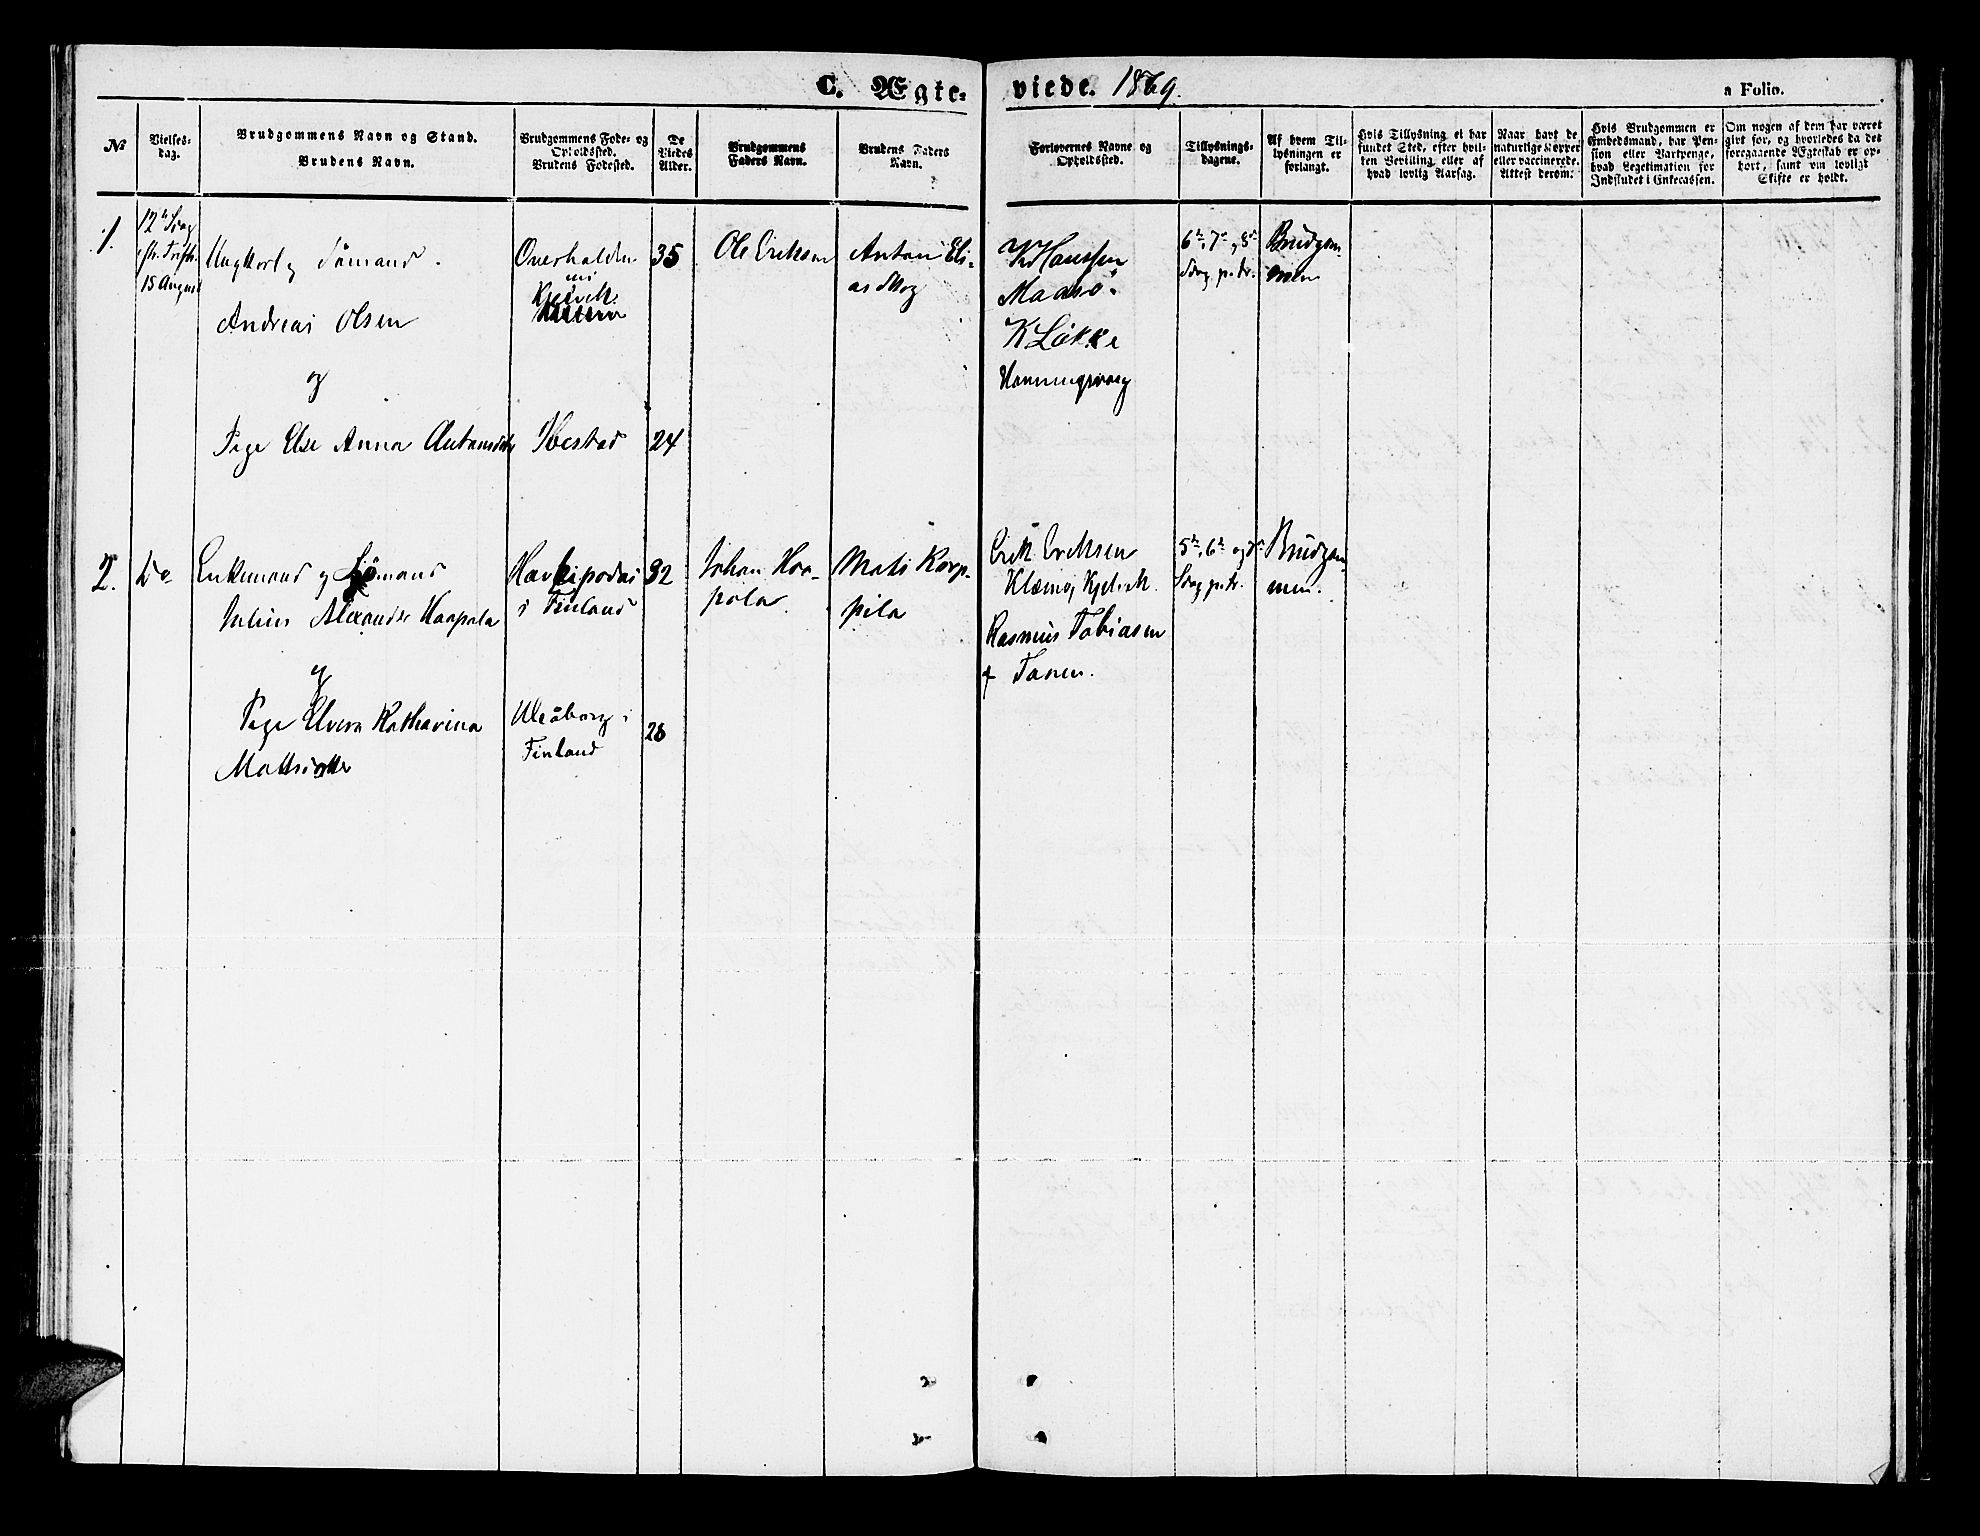 C. Ægte-
viede. 1869.
a Folio.
№
Vielses-
dag.
Brudgommens Navn og Stand.
Brudens Navn.
Brudgommens Føde- og
Opholdssted.
Brudens Fødested.
De
Viedes
Alder.
Brudgommens
Faders Navn.
Brudens Faders
Navn.
Forlovernes Navne og
Opholdssted.
Tillysnings-
dagene.
Af hvem Til-
lysningen er
forlangt.
Hvis Tillysning ei har
fundet Sted, efter hvil-
ken Bevilling eller af
hvad lovlig Aarsag.
Naar havt de
naturlige Kopper
eller vaccinerede.
Attest derom.
Hvis Brudgommen er
Embedsmand, har Pen-
sion eller Vartpenge,
hvad Legitimation for
Indskudet i Enkecassen.
Om nogen af dem har været
gift før, og hvorledes da det
foregaaende Ægteskab er op-
hørt, samt om lovligt
Skifte er holdt.
1.
12te Sdag
eft. Trefh.
15 August
Ungkarl og Sømand.
Andreas Olsen
og
Pige Else Anna Antonsdtr
Overhalden
Kjelvik
Ibestad
35
24
Ole Eriksen
Anton Eli-
as Skog
Hanssen
Maasø
K Løkke
Honningsvaag
6te, 7de og 8de
Sdag p. tr.
Brudgom-
men
2.
Do
Enkemand og Sømand
Julius Alexander Haapala
og
Pige Elvera Katharina
Mattsdtter
Haukipodas
i Finland
Uleåborg i
Finland
32
26
Johan Haa-
pala.
Mats Karp-
pila
Erik Eriksen
Kjelvik
Rasmus Tobiasen
Tanen.
5te, 6te og 7de
Sdag p. tr.
Brudgom-
men.